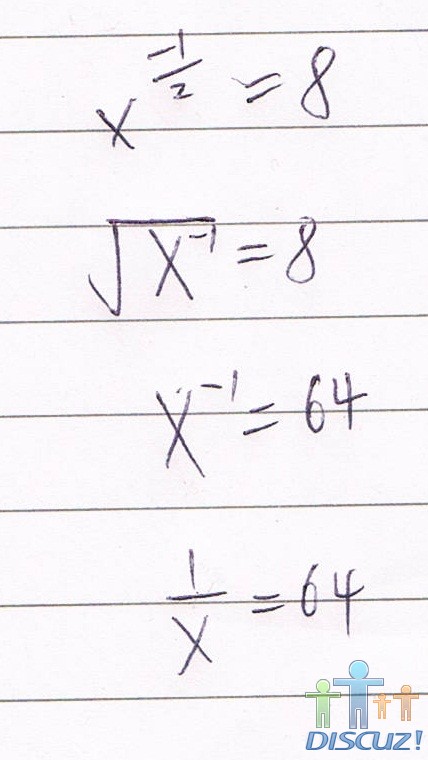 x^(-1/2) = 8
√(x^-1) = 8
x^-1 = 64
1/x = 64
DISCUZ!